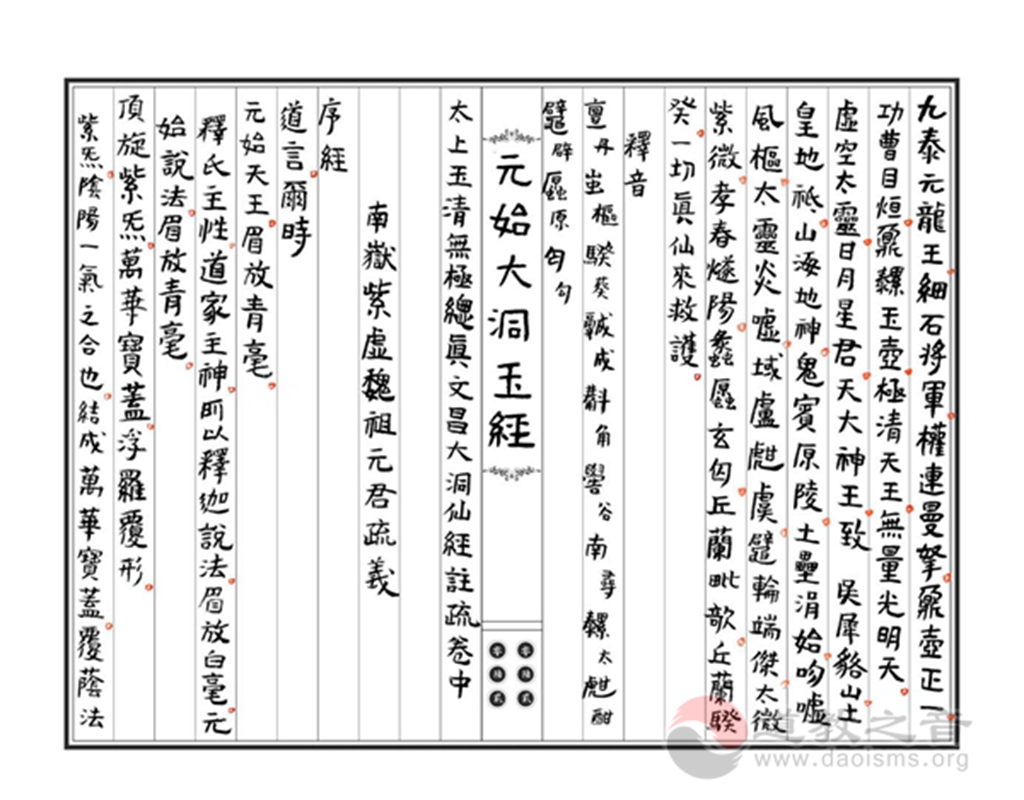 九泰元龍王細石將軍權連曼拏鼐壺正一
功曹目烜鼐騾玉壺極清天王無量光明天
虛空太靈日月星君天大神王致 吴犀貉山土
皇地祇山海地神鬼賓原陵土壘涓始吻嘘
風樞太靈炎嘘域盧魋虞躄輪端傑太微
紫微孝春燧陽螽𧓎玄匃丘蘭毗歆丘蘭騤
癸一切真仙來救護
釋音
亶丹 蚩樞 騤葵 諴成 斠角 嚳谷 南尋 騾太 魋酣
躄辟 𧓎原 匃匂
元始大洞玉經
太上玉清無極總真文昌大洞仙經註疏卷中
南嶽紫虛魏祖元君疏義
序經
道言爾時
元始天王眉放青毫
釋氏主性道家主神所以釋迦說法眉放白毫元
始說法眉放青毫
頂旋紫炁萬華寶蓋浮羅覆形
紫炁陰陽一氣之合也結成萬華寶蓋覆蔭法
道教之音
www.daoisms.org